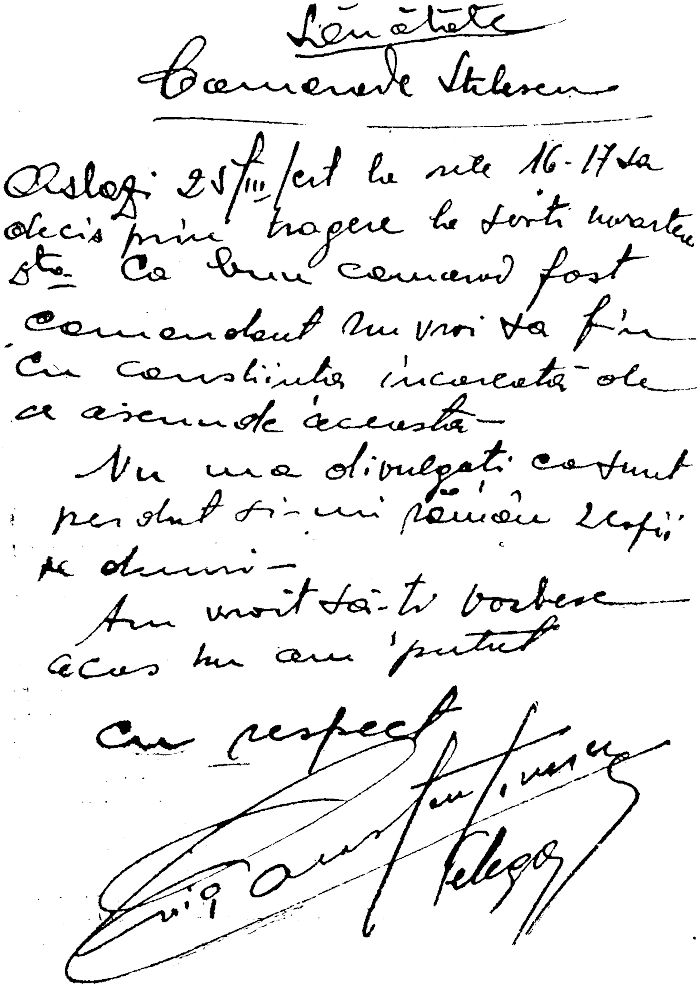 Sănătate
Camarade Stelescu
Astazi 25/III/crt la orele 16-17 sa
decis prin tragere la sorti moartea
Dta Ca bun camarad fost
comandant nu vroi sa fiu
cu constiinta incarcată de
a ascunde aceasta-
Nu ma divulgati ca sunt
perdut si-mi rămân 2 copii
pe drumuri-
Am vroit să-ti vorbesc
acas nu am putut
Cu respect
Constantinescu
Telega